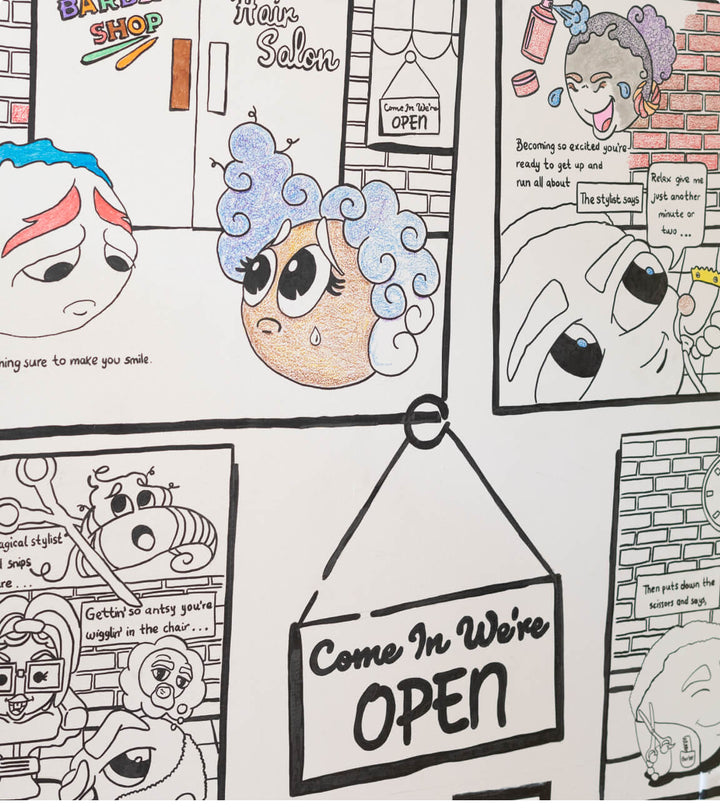 BARBER
SHOP
Hair
Salon
Come In We're
OPEN
Becoming so excited you're
ready to get up and
run all about
The stylist says
Relax give me
just another
minute or
two...
ning sure to make you smile.
agical stylist
snips
re...
Gettin' so antsy you're
wigglin' in the chair...
Come In We're
OPEN
Then puts down the
scissors and says,